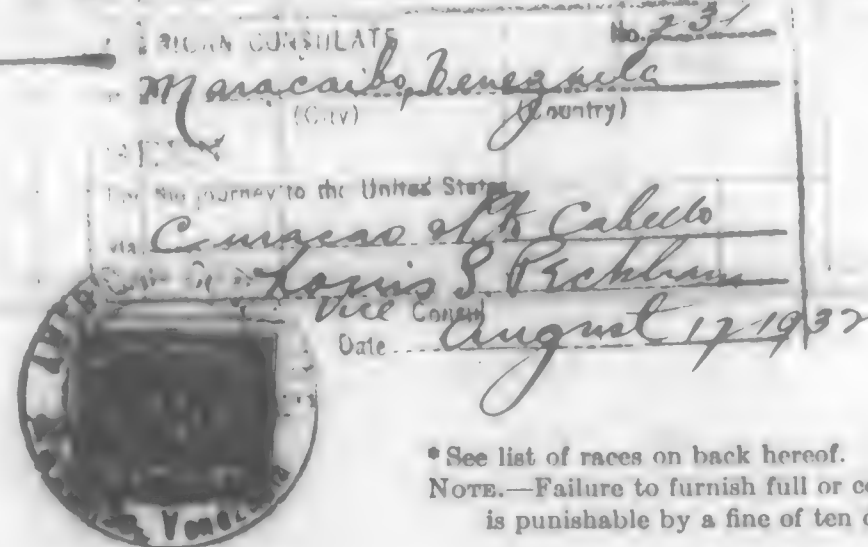 RICAN CONSULATE No. 231
Maracaibo, Venezuela
(City) (Country)
For the journey to the United States
via Curacao & Pto Cabello
Louis S Peckham
Vice Consul
Date August 17-1932
* See list of races on back hereof.
NOTE.—Failure to furnish full or co
is punishable by a fine of ten d